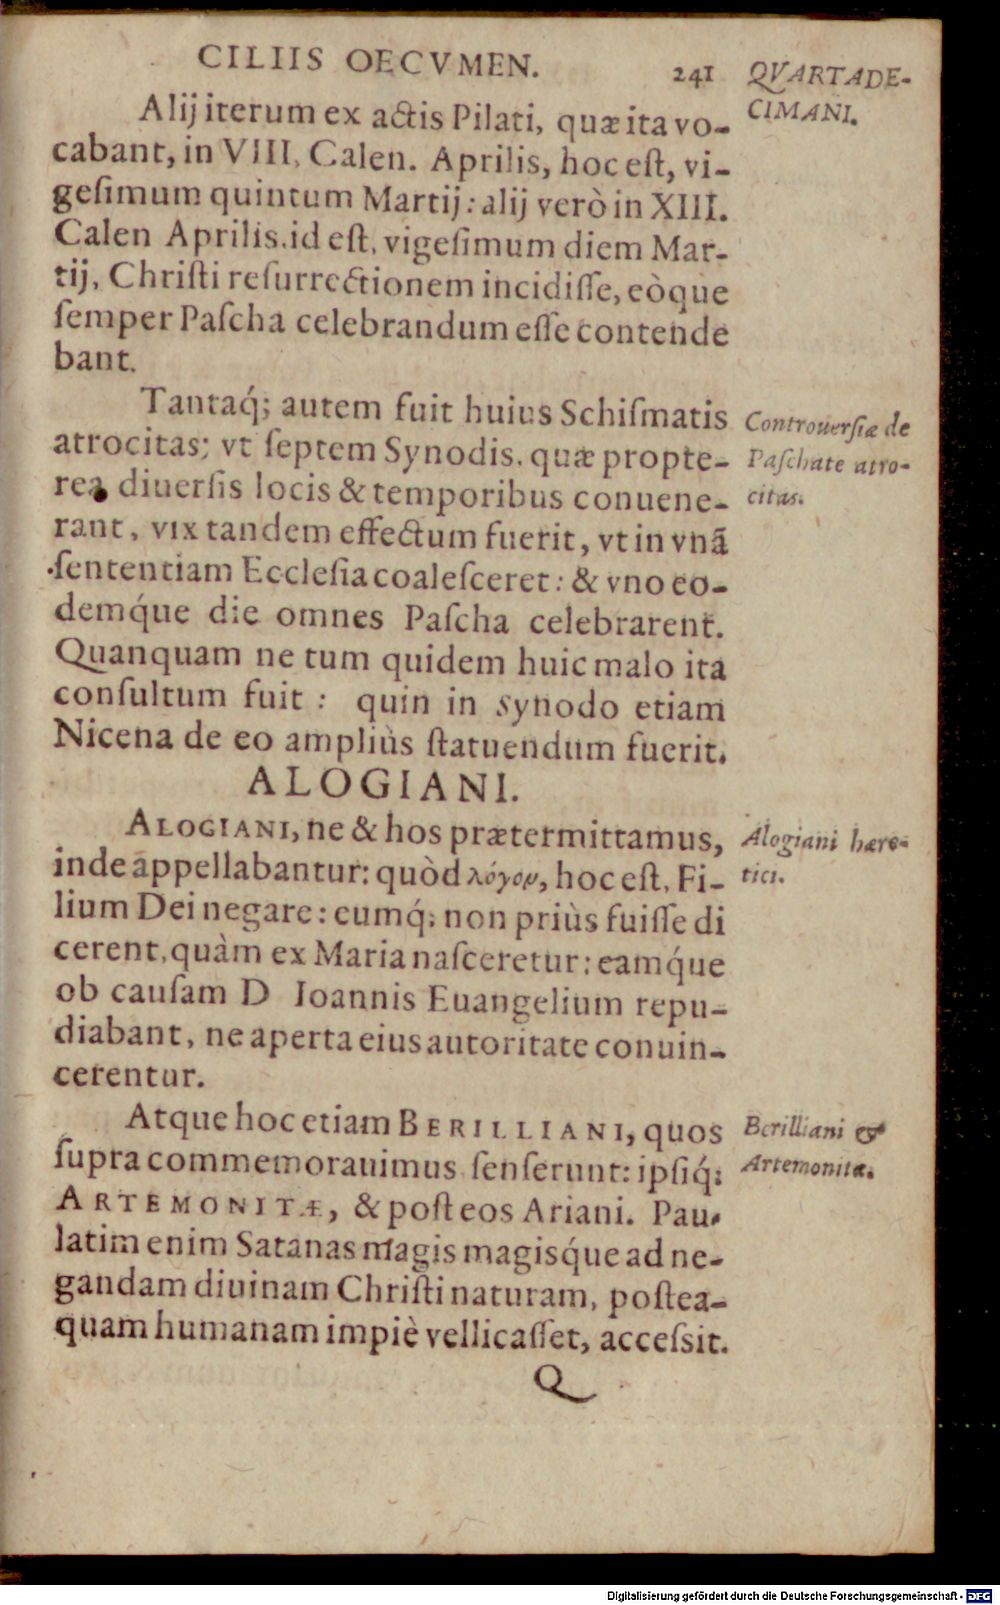 CILIIS OECVMEN. 241
QVARTADE-
CIMANI.
Alij iterum ex actis Pilati, quæ ita vo-
cabant, in VIII. Calen. Aprilis, hoc eſt, vi-
geſimum quintum Martij: alij verò in XIII.
Calen Aprilis. id eſt, vigeſimum diem Mar-
tij, Chriſti reſurrectionem incidiſſe, eòque
ſemper Paſcha celebrandum eſſe contende
bant.
Tantaq́; autem fuit huius Schiſmatis
atrocitas; vt ſeptem Synodis, quæ propte-
rea diuerſis locis & temporibus conuene-
rant, vix tandem effectum fuerit, vt in vnã
ſententiam Eccleſia coaleſceret: & vno eo-
demq́ue die omnes Paſcha celebrarent.
Quanquam ne tum quidem huic malo ita
conſultum fuit: quin in synodo etiam
Nicena de eo ampliùs ſtatuendum fuerit.
Controuerſiæ de
Paſchate atro-
citas.
ALOGIANI.
ALOGIANI, ne & hos prætermittamus,
inde appellabantur: quòd λόγον, hoc eſt, Fi-
lium Dei negare: eumq́; non priùs fuiſſe di
cerent, quàm ex Maria naſceretur: eamq́ue
ob cauſam D Ioannis Euangelium repu-
diabant, ne aperta eius autoritate conuin-
cerentur.
Alogiani hære-
tici.
Atque hoc etiam BERILLIANI, quos
ſupra commemorauimus ſenſerunt: ipſiq́;
ARTEMONITÆ, & poſt eos Ariani. Pau-
latim enim Satanas magis magisq́ue ad ne-
gandam diuinam Chriſti naturam, poſtea-
quam humanam impiè vellicaſſet, acceſsit.
Berilliani &
Artemonitæ.
Q
Digitalisierung gefördert durch die Deutsche Forschungsgemeinschaft - DFG